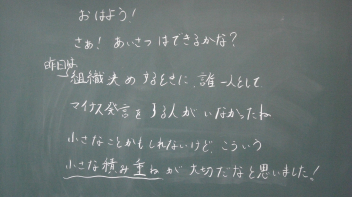 おはよう!
さぁ!あいさつはできるかな?
昨日は
組織決めするときに、誰一人として
マイナス発言をする人がいなかったね
小さなことかもしれないけど、こういう
小さな積み重ねが大切だなと思いました!